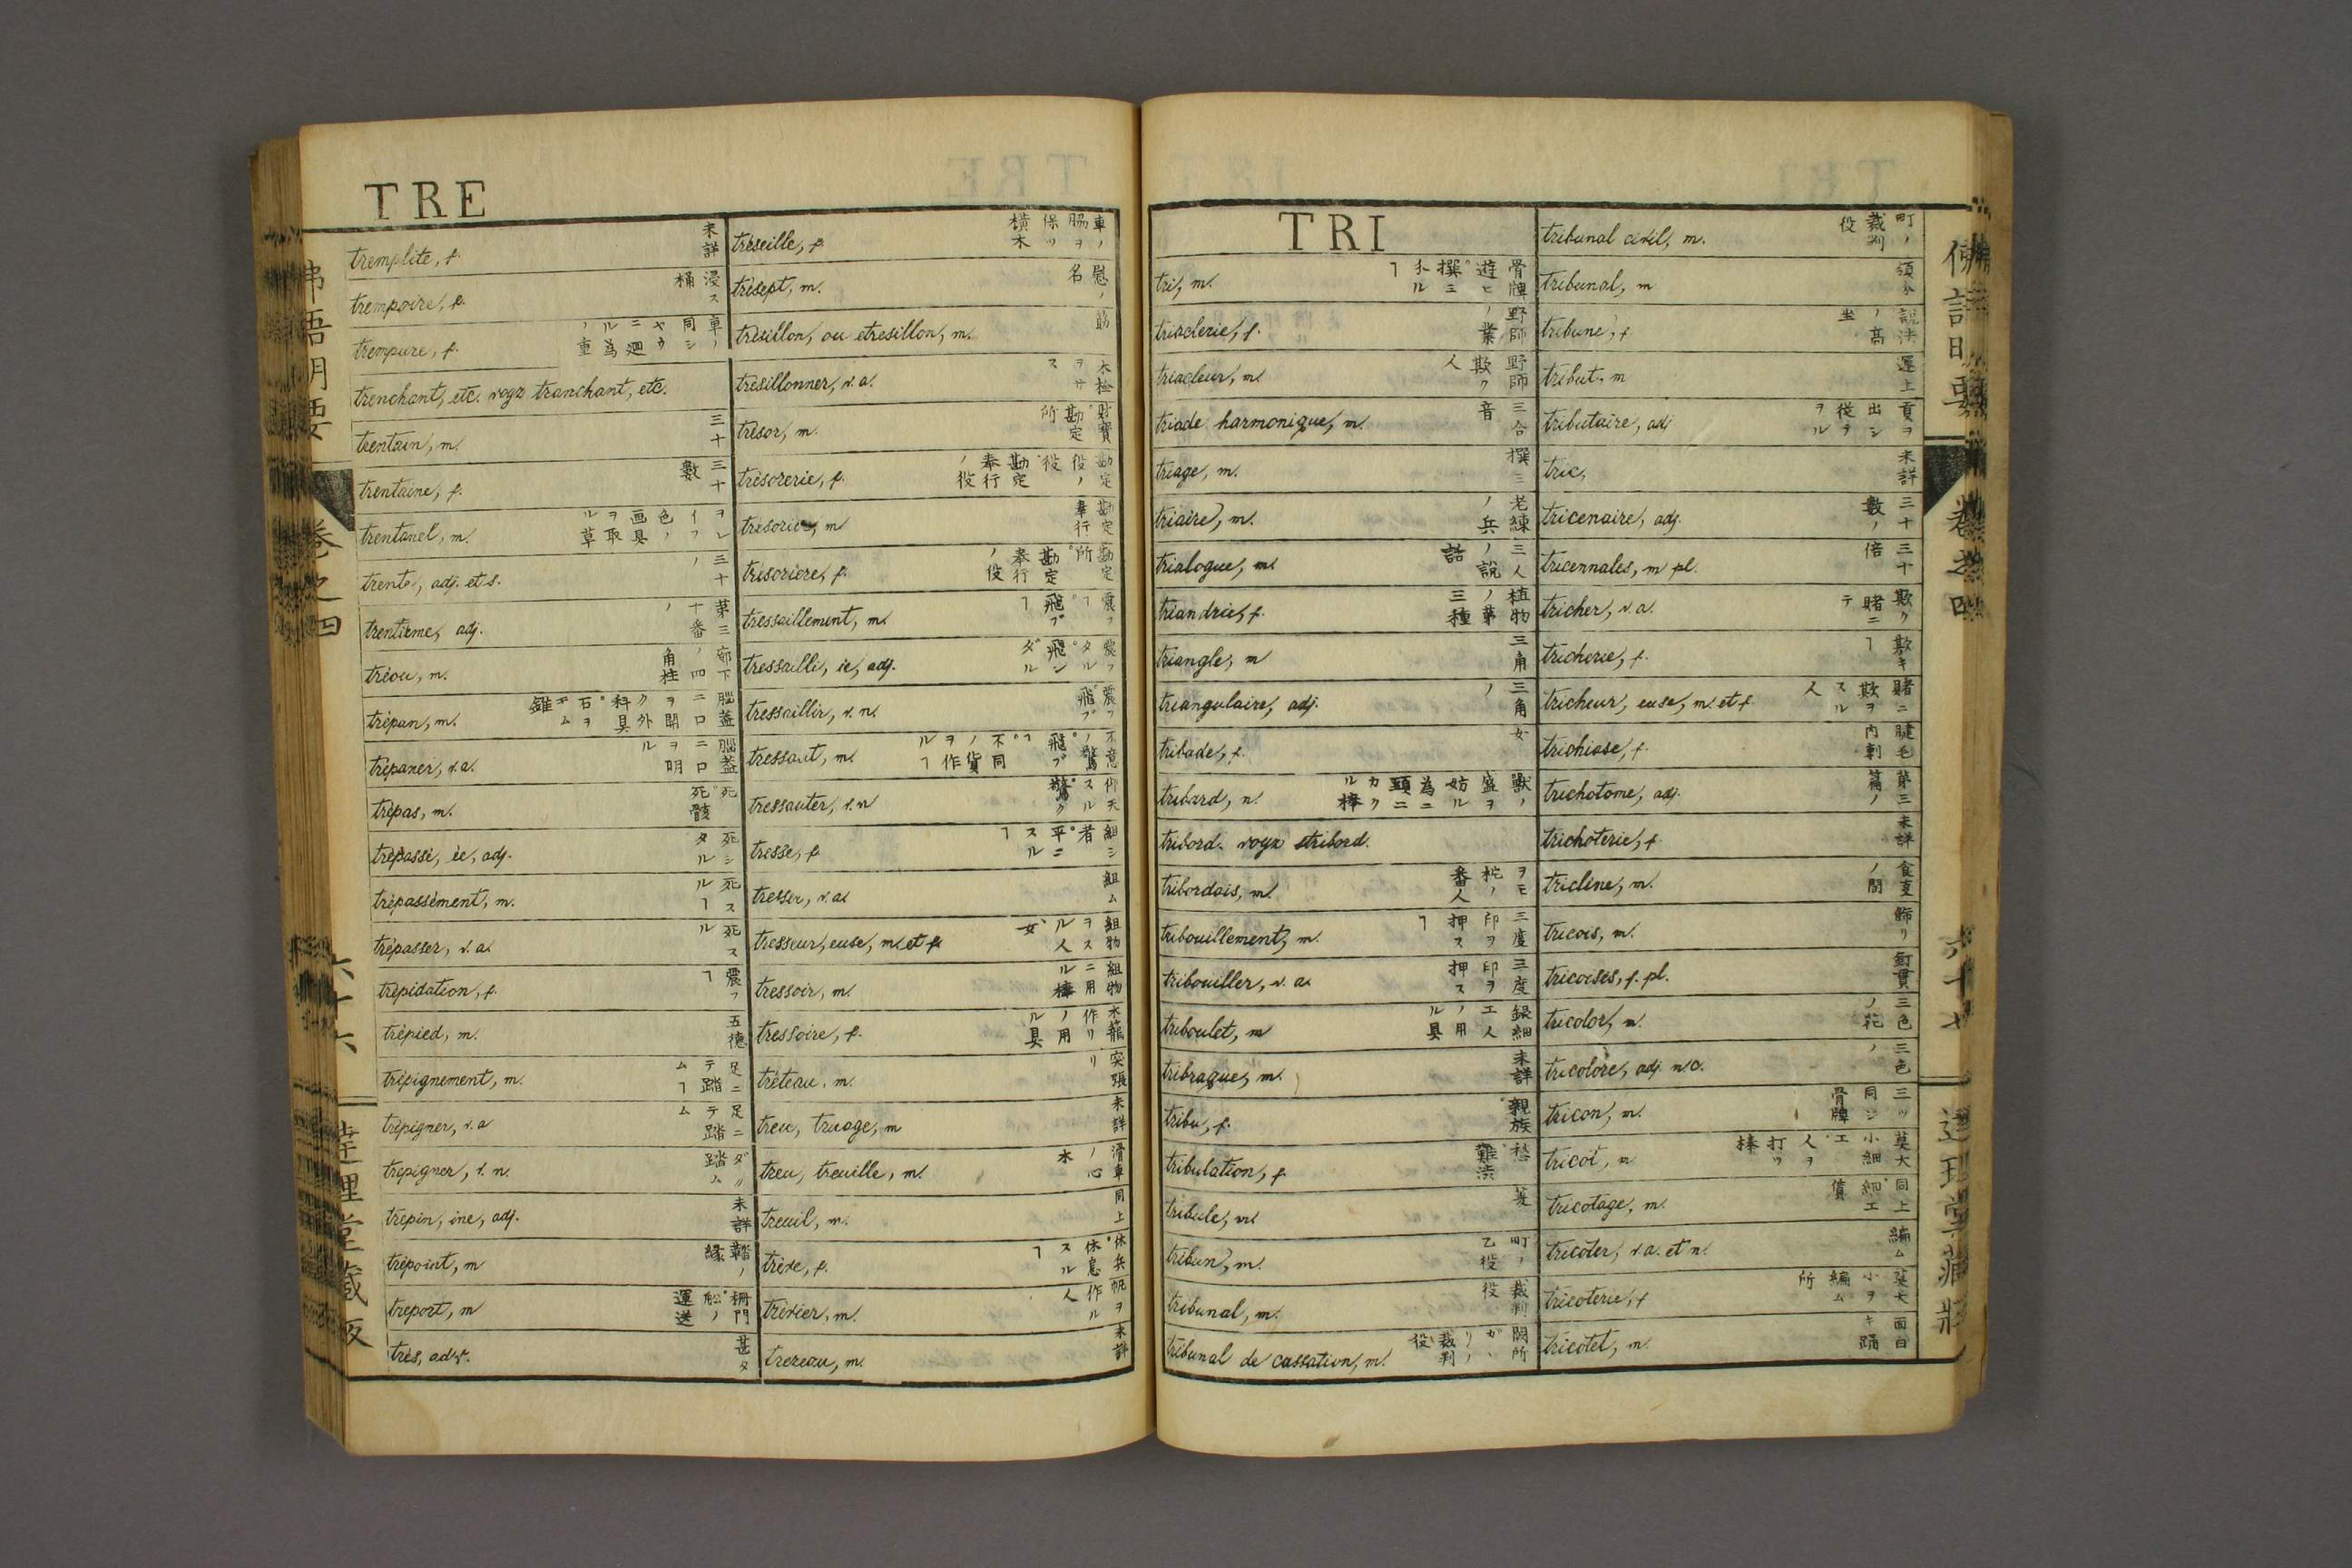 TRE
tremplite, f. 未詳
trempoire, f. 浸ス桶
trempure, f.
trenchant, etc. voyz tranchant, etc.
trentain, m. 三十
trentaine, f. 三十數
trentanel, m.
trente, adj. et s. 三十ノ
trentieme, adj. 第三十番ノ
tréou, m.
trépan, m.
trépaner, v.a.
trépas, m. 死°死骸
trépassé, ée, adj. 死シタル
trépassement, m. 死スルヿ
trépasser, v.a. 死スル
trépidation, f. 震フヿ
trépied, m. 五德
trépignement, m. 足ニテ踏ムヿ
trépigner, v.a 足ニテ踏ム
trépigner, v.n. 踏ム
trépin, ine, adj. 未詳
trépoint, m
tréport, m
très, adv. 甚タ
tréseille, f.
trésept, m.
trésillon, ou etresillon, m.
trésillonner, v.a.
trésor, m. 財寶°勘定所
trésorerie, f. 勘定ノ役°勘定奉行ノ役
trésorier, m 勘定奉行
trésorière, f. 勘定所°勘定奉行ノ役
tressaillement, m. 震フヿ°飛ブヿ
tressailli, ie, adj. 震フタル°飛ンダル
tressaillir, v.n. 震フ°飛ブ
tressaut, m.
tressauter, v.n 仰天スル°驚ク
tresse, f.
tresser, v.a. 組ム
tresseur, euse, m. et f. 組物ヲスル人
tressoir, m. 組物ニ用ル棒
tressoire, f.
tréteau, m. 突張リ
treu, truage, m 未詳
treu, treuille, m. 滑車ノ心木
treuil, m. 同上
trève, f. 休兵°休息スルヿ
trévier, m. 帆ヲ作ル人
trezeau, m. 未詳
佛語明要
卷之四
六十六
達理堂藏版
TRI
tri, m.
triaclerie, f. 野師ノ業
triacleur, m. 野師°欺ク人
triade harmonique, m. 三合音
triage, m. 撰ミ
triaire, m. 老練ノ兵
trialogue, m. 三人ノ說話
triandrie, f. 植物ノ第三種
triangle, m 三角
triangulaire, adj. 三角ノ
tribade, f.
tribard, n.
tribord. voyz stribord.
tribordais, m.
tribouillement, m. 三度印ヲ押スヿ
tribouiller, v.a. 三度印ヲ押ス
triboulet, m 銀細工人ノ用ル具
tribraque, m. 未詳
tribu, f. 親族
tribulation, f. 愁°難渋
tribule, m 菱
tribun, m. 町ノ乙役
tribunal, m. 裁判役
tribunal de cassation, m.
tribunal civil, m. 町ノ裁判役
tribunal, m
tribune, f. 說法ノ高坐
tribut, m 運上
tributaire, adj 貢ヲ出シテ從ヲル
tric, 未詳
tricenaire, adj. 三十數ノ
tricennales, m pl. 三十倍
tricher, v.a. 賭ニテ欺ク
tricherie, f. 欺キヿ
tricheur, euse, m. et f 賭ニ欺ヲスル人
trichiase, f. 睫毛內刺
trichotome, adj. 第三篇ノ
trichoterie, f 未詳
tricline, m. 食堂ノ間
tricois, m. 飾リ
tricoises, f. pl.
tricolor, m. 三色ノ花
tricolore, adj. n.c. 三色ノ
tricon, m. 三ツ同シ骨牌
tricot, m 莫大小細工°人ヲ打ツ棒
tricotage, m. 同上°細工賃
tricoter, v.a. et n. 編ム
tricoterie, f 莫大小ヲ編ム所
tricotet, m. 面白キ踊
佛語明要
卷之四
六十七
達理堂藏版